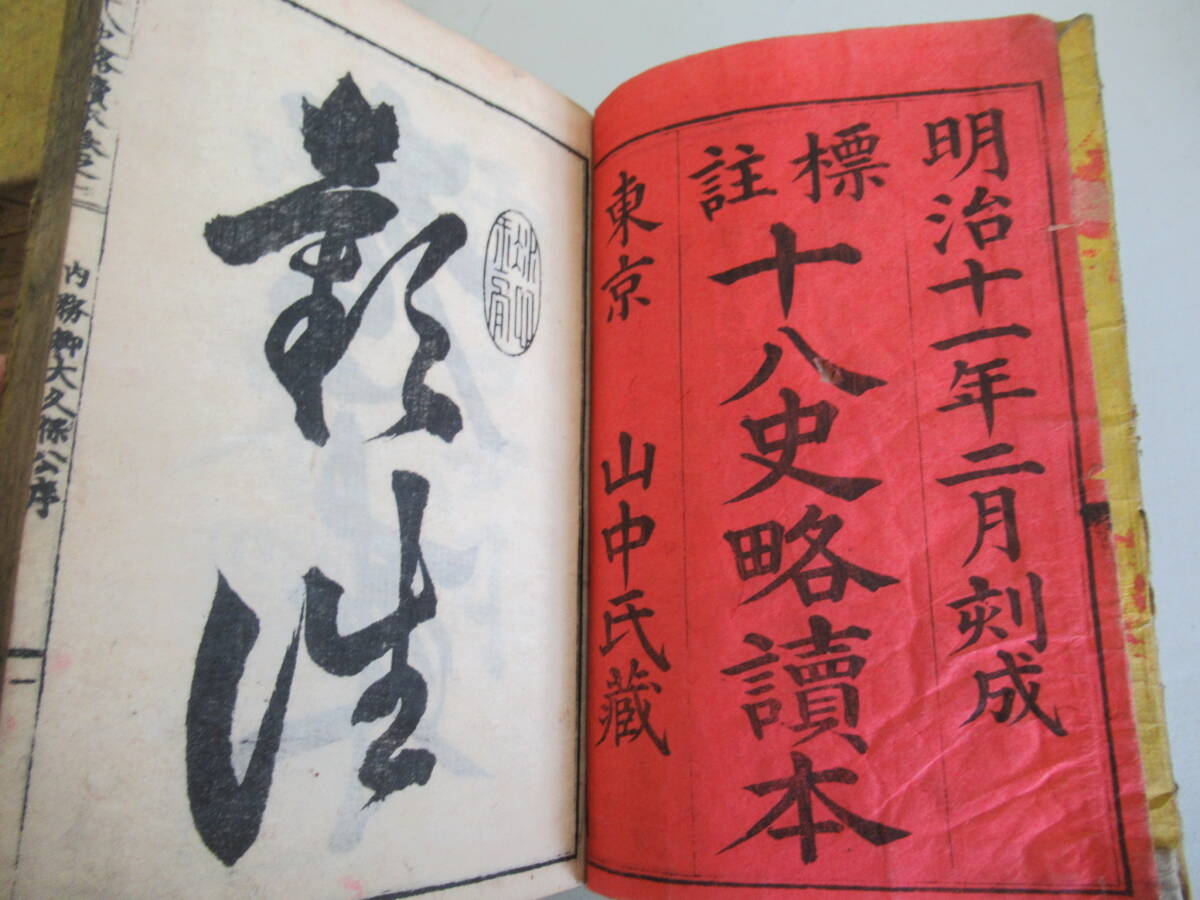 明治十一年二月刻成
標註
十八史略讀本
東京 山中氏藏
彰往
內務卿大久保公序
一